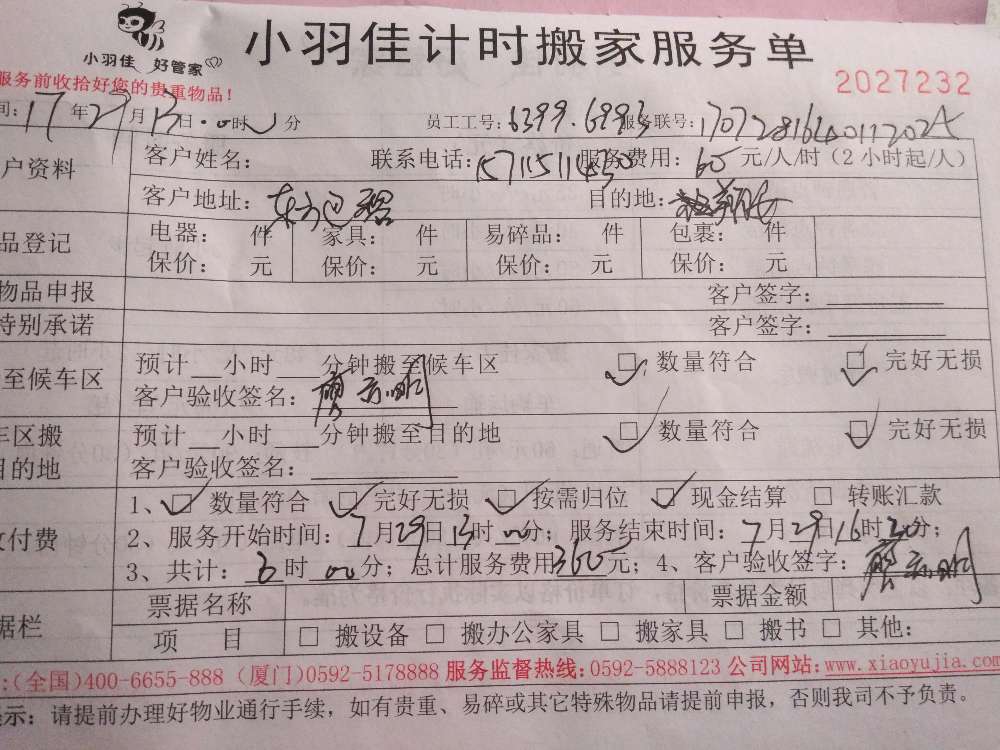 小羽佳 好管家
小羽佳计时搬家服务单
服务前收拾好您的贵重物品！
2027232
间：17年 月 日 时 分 员工工号：6399.6993 服务联号：
户资料 客户姓名： 联系电话： 服务费用：60元/人/时（2小时起/人）
客户地址：东方巴黎 目的地：
品登记 电器： 件 家具： 件 易碎品： 件 包裹： 件
保价： 元 保价： 元 保价： 元 保价： 元
物品申报 客户签字：
特别承诺 客户签字：
至候车区 预计 小时 分钟搬至候车区 □ 数量符合 □ 完好无损
客户验收签名：
车区搬 预计 小时 分钟搬至目的地 □ 数量符合 □ 完好无损
目的地 客户验收签名：
收付费 1、□ 数量符合 □ 完好无损 □ 按需归位 □ 现金结算 □ 转账汇款
2、服务开始时间：7月29日13时00分；服务结束时间：7月29日16时 分；
3、共计：6时00分；总计服务费用360元；4、客户验收签字：
据栏 票据名称 票据金额
项 目 □ 搬设备 □ 搬办公家具 □ 搬家具 □ 搬书 □ 其他：
：(全国)400-6655-888 (厦门)0592-5178888 服务监督热线：0592-5888123 公司网站：www.xiaoyujia.com
提示：请提前办理好物业通行手续，如有贵重、易碎或其它特殊物品请提前申报，否则我司不予负责。